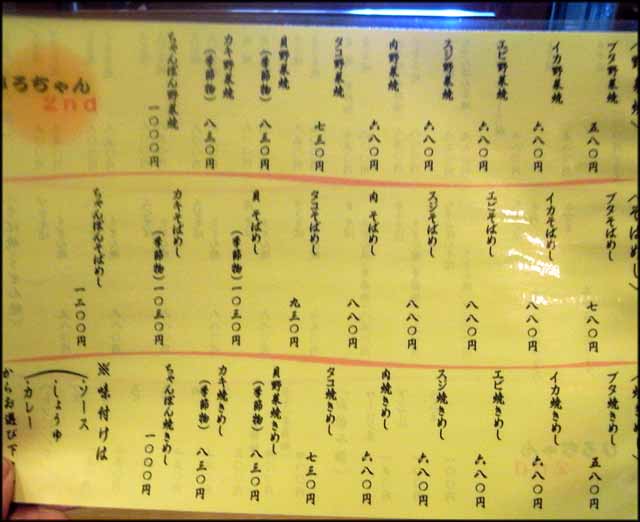 ブタ野菜焼 五八〇円
イカ野菜焼 六八〇円
エビ野菜焼 六八〇円
スジ野菜焼 六八〇円
肉野菜焼 六八〇円
タコ野菜焼 七三〇円
貝野菜焼
(季節物) 八三〇円
カキ野菜焼
(季節物) 八三〇円
ちゃんぽん野菜焼 一〇〇〇円
ろちゃん
2nd
ブタそばめし 七八〇円
イカそばめし 八八〇円
エビそばめし 八八〇円
スジそばめし 八八〇円
肉そばめし 八八〇円
タコそばめし 九三〇円
貝そばめし
(季節物) 一〇三〇円
カキそばめし
(季節物) 一〇三〇円
ちゃんぽんそばめし 一二〇〇円
ブタ焼きめし 五八〇円
イカ焼きめし 六八〇円
エビ焼きめし 六八〇円
スジ焼きめし 六八〇円
肉焼きめし 六八〇円
タコ焼きめし 七三〇円
貝野菜焼きめし
(季節物) 八三〇円
カキ焼きめし
(季節物) 八三〇円
ちゃんぽん焼きめし 一〇〇〇円
※味付けは
・ソース
・しょうゆ
・カレー
からお選び下